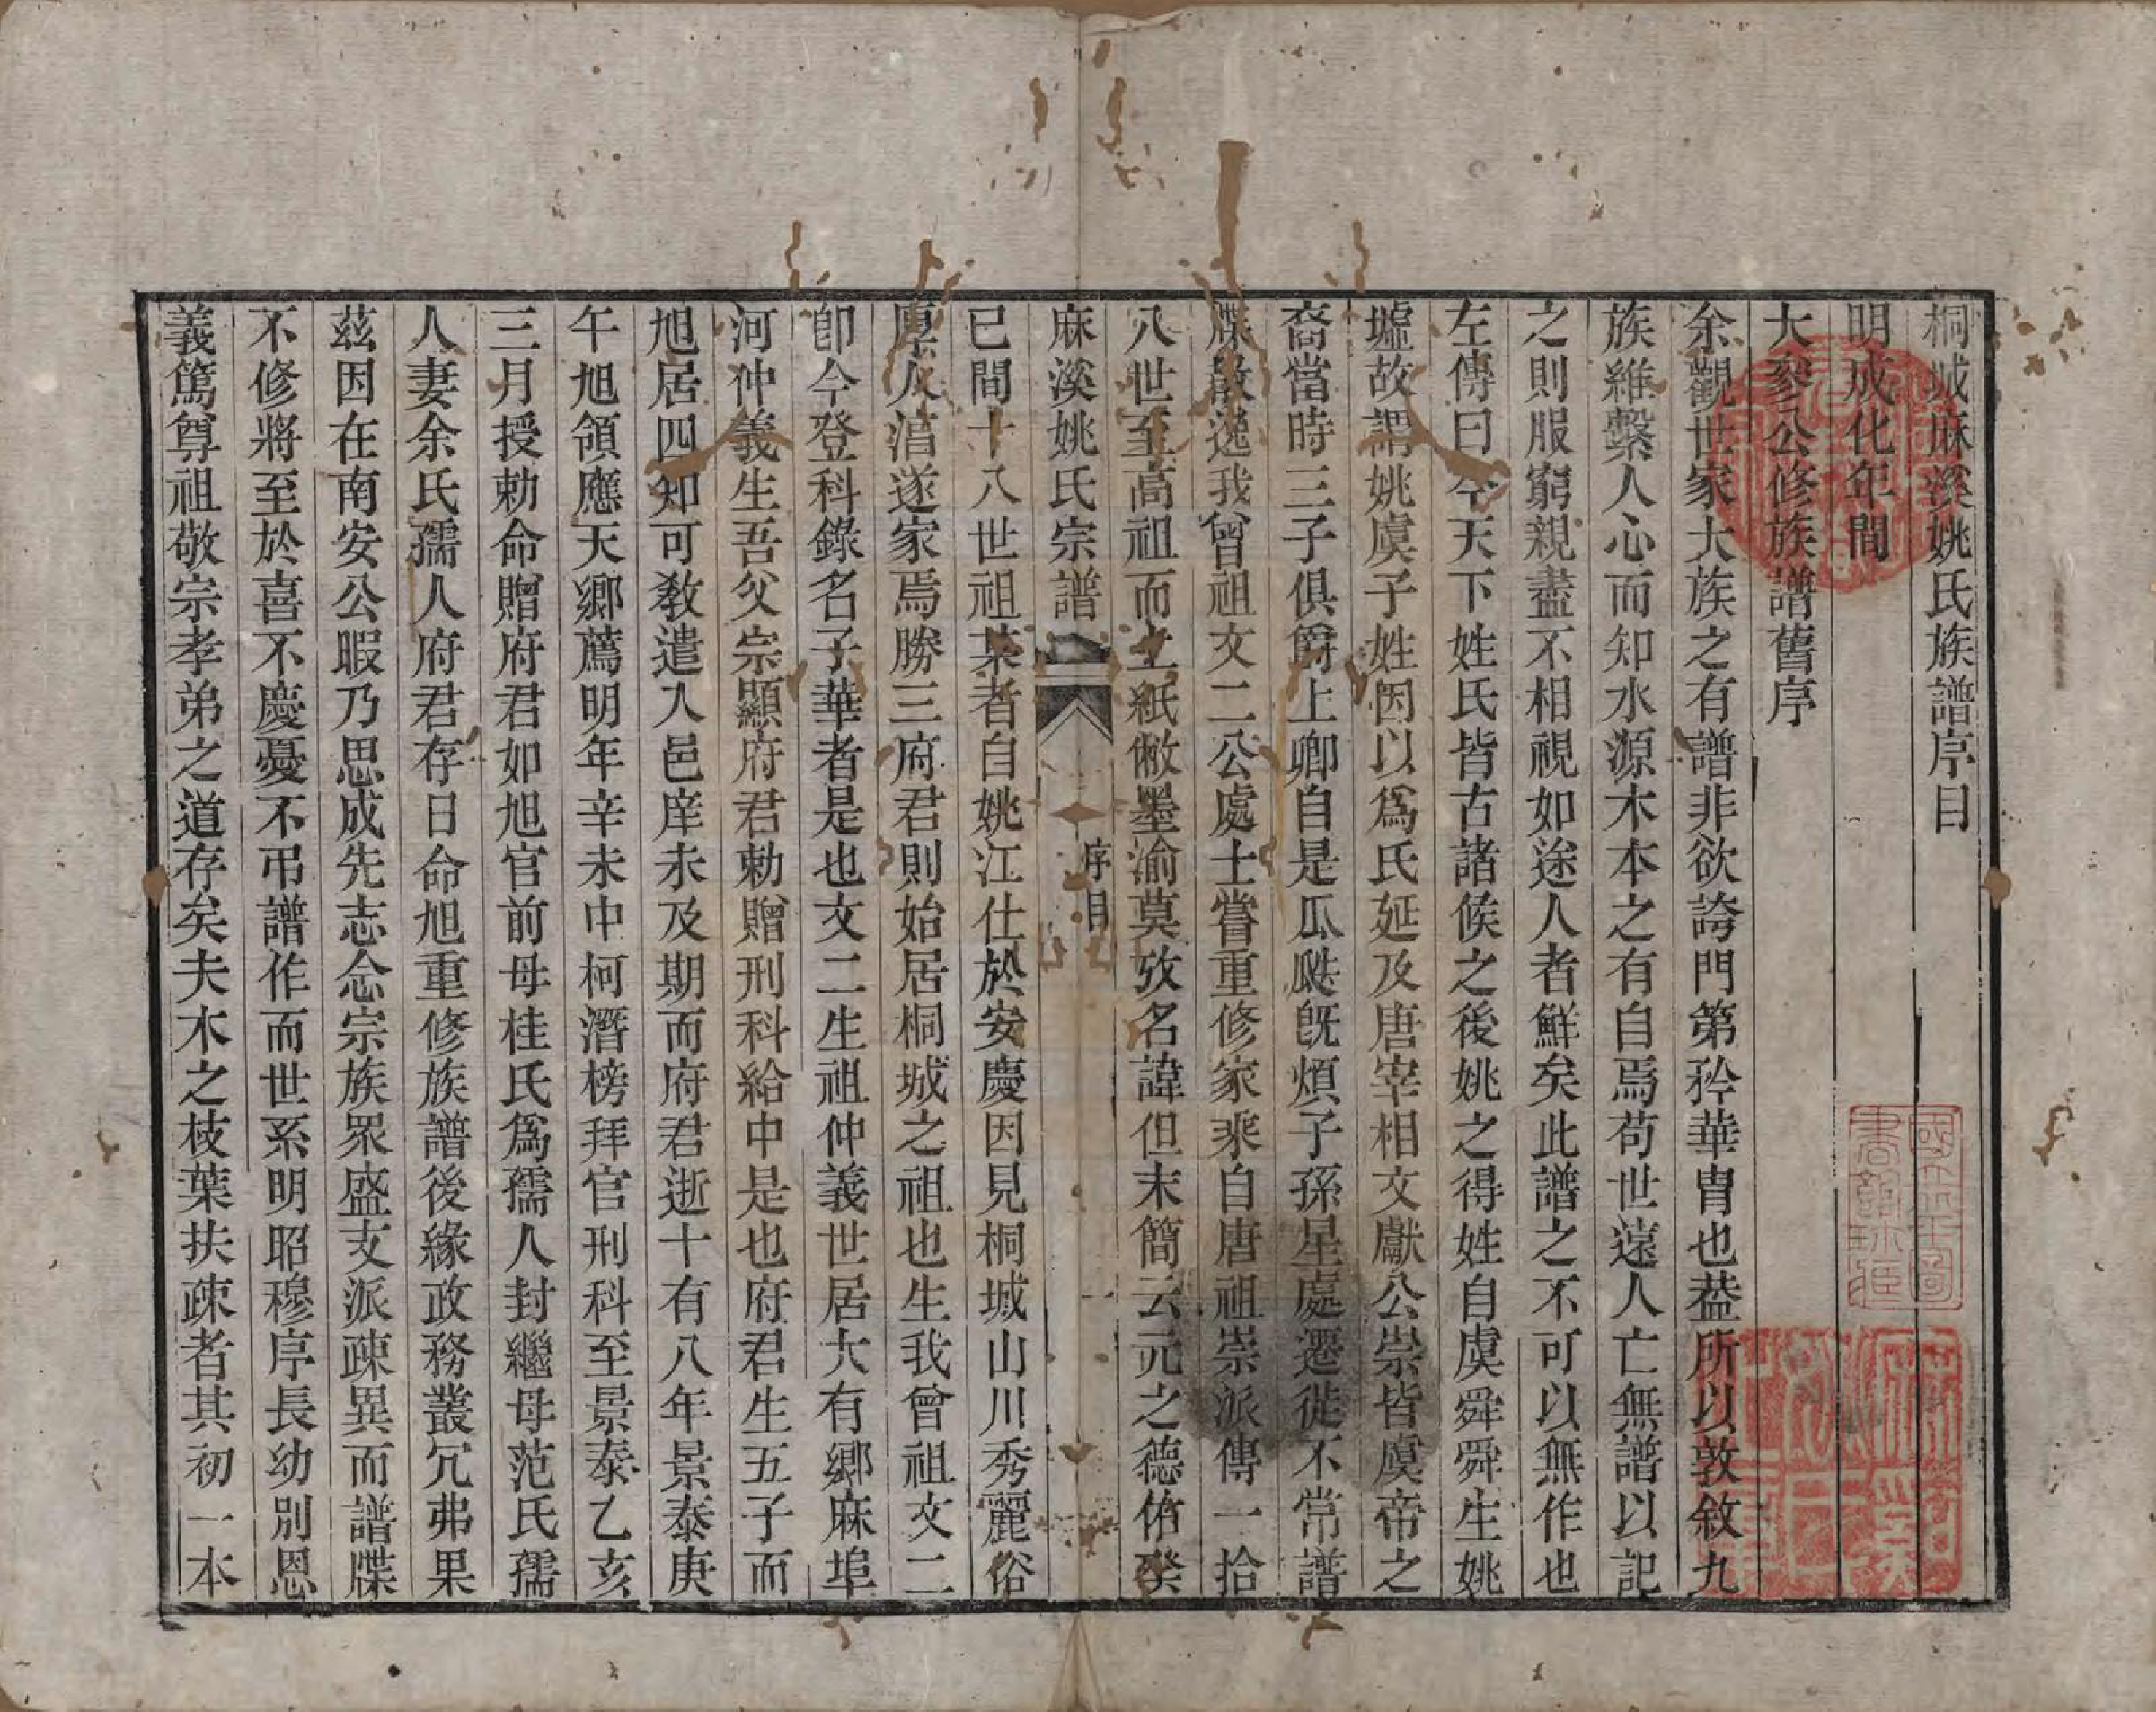 桐城麻溪姚氏族譜序目
明成化年間
大參公修族譜舊序
余觀世家大族之有譜非欲誇門第矜華胄也葢所以敦敘九
族維繫人心而知水源木本之有自焉苟世遠人亡無譜以記
之則服窮親盡不相視如途人者鮮矣此譜之不可以無作也
左傳曰今天下姓氏皆古諸候之後姚之得姓自虞舜舜生姚
墟故謂姚虞子姓因以爲氏延及唐宰相文獻公崇皆虞帝之
裔當時三子俱爵上卿自是瓜瓞旣煩子孫星處遷徙不常譜
牒散逸我曾祖文二公處士嘗重修家乘自唐祖崇派傳一拾
八世至高祖而止紙敝墨渝莫攷名諱但末簡云元之德佑癸
麻溪姚氏宗譜
序目
已間十八世祖某者自姚江仕於安慶因見桐城山川秀麗俗
厚人淸遂家焉勝三府君則始居桐城之祖也生我曾祖文二
卽今登科錄名子華者是也文二生祖仲義世居大有鄉麻埠
河仲義生吾父宗顯府君勅贈刑科給中是也府君生五子而
旭居四知可敎遣入邑庠未及期而府君逝十有八年景泰庚
午旭領應天鄉薦明年辛未中柯潛榜拜官刑科至景泰乙亥
三月授勅命贈府君如旭官前母桂氏爲孺人封繼母范氏孺
人妻余氏孺人府君存日命旭重修族譜後緣政務叢冗弗果
茲因在南安公暇乃思成先志念宗族眾盛支派疎異而譜牒
不修將至於喜不慶憂不弔譜作而世系明昭穆序長幼別恩
義篤尊祖敬宗孝弟之道存矣夫木之枝葉扶疎者其初一本